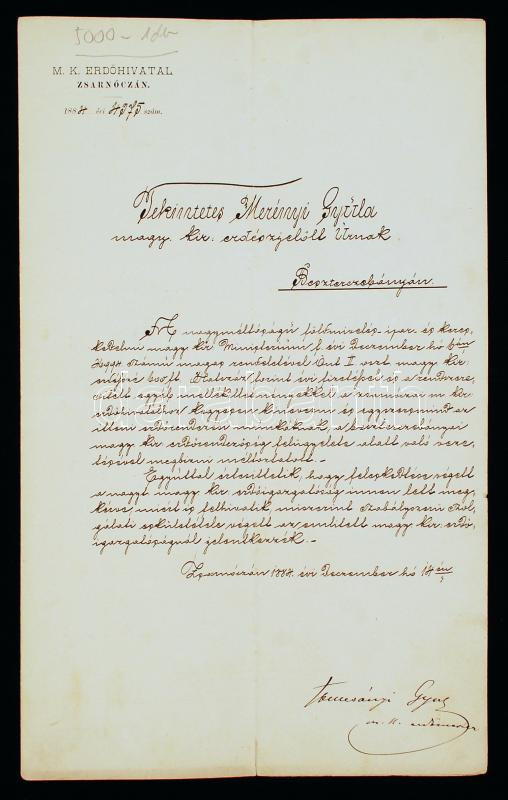 5000 - 1db
M. K. ERDŐHIVATAL
ZSARNÓCZÁN.
1884 évi 4575. szám.
Tekintetes Merényi Gyula
magy. kir: erdészjelölt Úrnak
Beszterczebányán.
A nagyméltóságú földmivelés-ipar- és keres-
kedelmi magy kir. Ministerium f. évi Deczember hó
számú magas rendeletével Önt I oszt magy kir:
600 ft. Hatszáz forint évi
egyéb mellékilletményekkel a m kir
erdőhivatalhoz kinevezni és egyszersmind az
illem erdőrendezési munkáknak, a beszterczebányai
magy kir erdőrendezőség felügyelete alatt való veze-
tésével megbizni méltóztatott.-
Egyúttal értesittetik, hogy felesketése végett
a nagys magy kir erdőigazgatóság innen lett meg-
kérve, miért is felhivatik miszerint szabályszerű szol-
gálati eskütétele végett az emlitett magy: kir: erdő-
igazgatóságnál jelentkezzék.-
Zsarnóczán 1884. évi Deczember hó 14 én
Tomcsányi Gyula
m. k.
darabanth